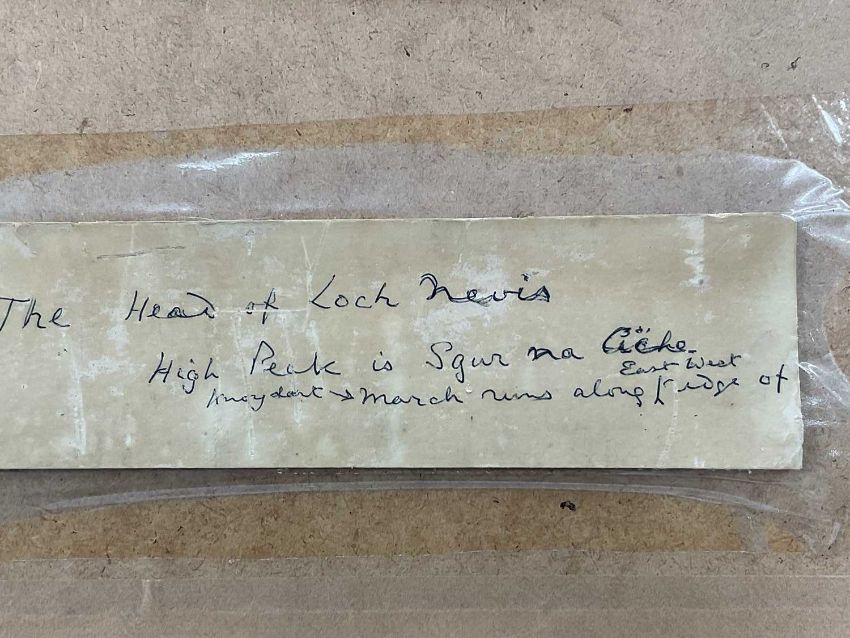 The Head of Loch Nevis
High Peak is Sgur na Cïche
East West
Knoydart → March runs along ridge of